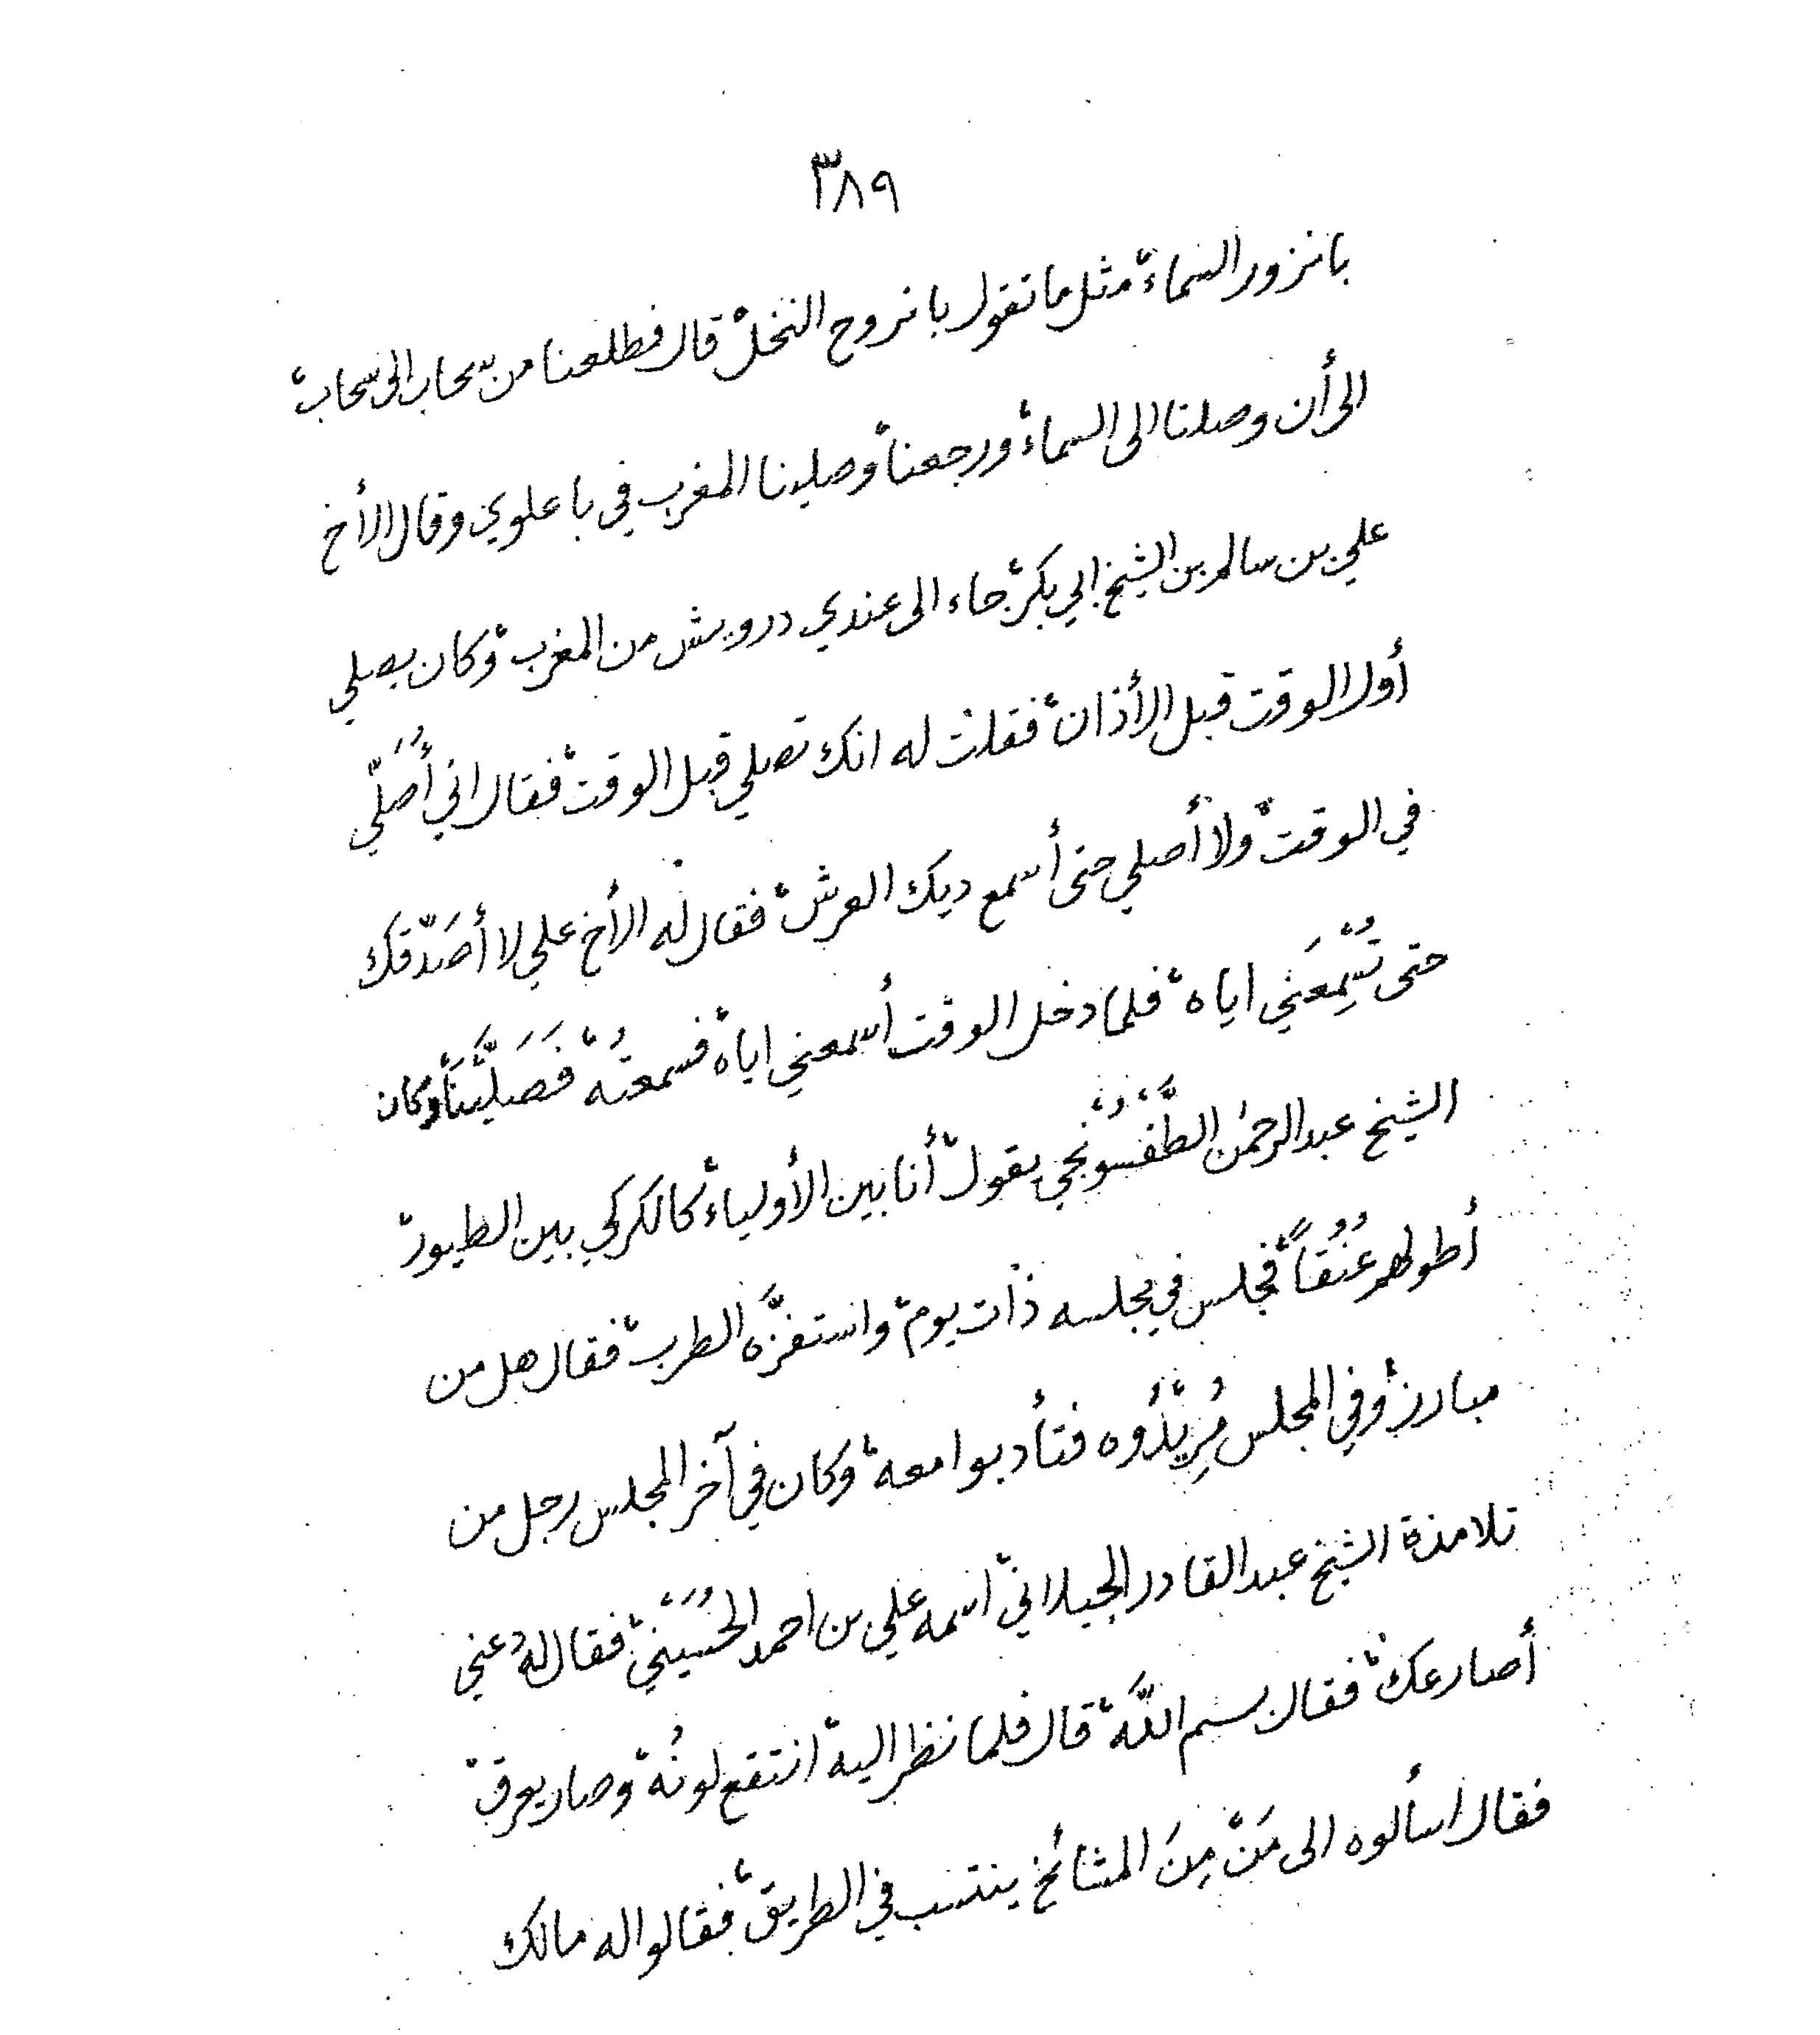 ٣٨٩
بانزور السماء، مثل ما تقول بانروح النخل، قال فطلعنا من سحاب الى سحاب،
الى أن وصلنا الى السماء، ورجعنا، وصلينا المغرب في باعلوي وقال الأخ
علي بن سالم بن الشيخ ابي بكر، جاء الى عندي درويش من المغرب، وكان يصلي
أول الوقت قبل الأذان، فقلت له انك تصلي قبل الوقت، فقال اني أُصَلّي
في الوقت، ولا أصلي حتى أسمع ديك العرش، فقال له الأخ علي لا أصَدّقك
حتى تُسْمِعَني اياه، فلما دخل الوقت أسمعني اياه، فسمعتُه، فَصَلَّيْنَا، وكان
الشيخ عبدالرحمٰن الطَّفْسُونْجي يقول، أنا بين الأولياء، كالكركي بين الطيور،
أطولهم عُنُقاً، فجلس في مجلسه ذات يوم، واستفزَّه الطرب، فقال هل من
مبارز، وفي المجلس مُرِيْدُوه فتأدبوا معه، وكان في آخر المجلس رجل من
تلامذة الشيخ عبدالقادر الجيلاني، اسمه علي بن احمد الحُسَيْني، فقال له دعني
أصارعك، فقال بسم اللّه، قال فلما نظر اليه، انتقع لونُه، وصار يعرق،
فقال اسألوه الى مَنْ مِنَ المشائخ ينتسب في الطريق، فقالوا له مالك